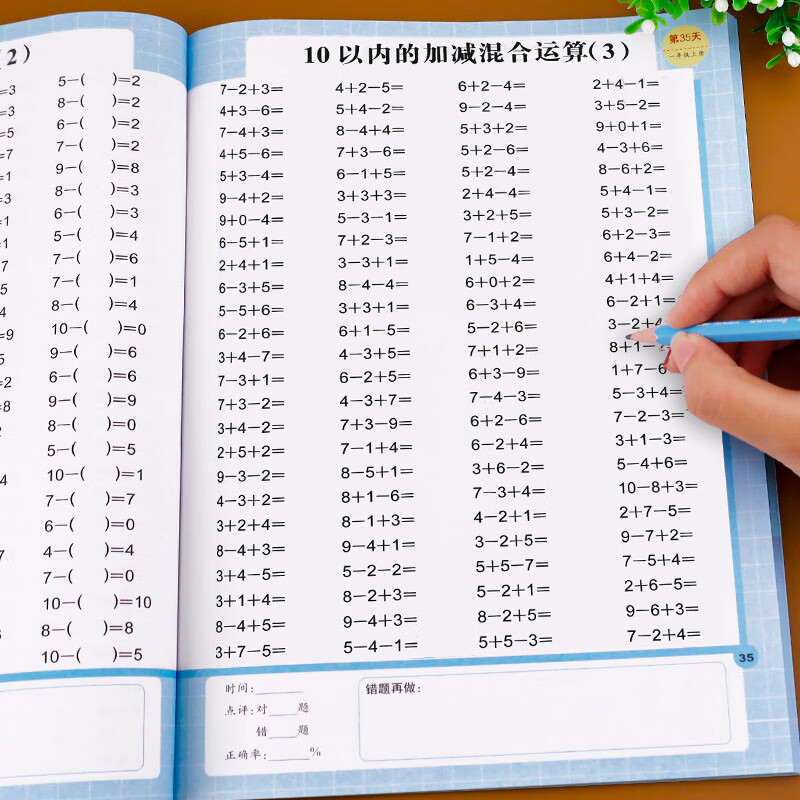 2)
=3 5－( )=2
=3 8－( )=2
=5 6－( )=2
=7 7－( )=2
=1 9－( )=8
=3 8－( )=3
=1 6－( )=3
=1 5－( )=4
7 7－( )=6
5 7－( )=1
4 8－( )=4
=9 10－( )=0
5 9－( )=6
=2 6－( )=6
=8 9－( )=9
2 8－( )=0
5－( )=5
4 10－( )=1
7－( )=7
6－( )=0
7 4－( )=4
7－( )=0
10－( )=10
8 8－( )=8
10－( )=5
10 以内的加减混合运算(3)
第35天
一年级上册
7－2+3= 4+2－5= 6+2－4= 2+4－1=
4+3－6= 5+4－2= 9－2－4= 3+5－2=
7－4+3= 8－4+4= 5+3+2= 9+0+1=
4+5－6= 7+3－6= 5+2－6= 4－3+6=
5+3－4= 6－1+5= 5+2－4= 8－6+2=
9－4+2= 3+3+3= 2+4－4= 5+4－1=
9+0－4= 5－3－1= 3+2+5= 5+3－2=
6－5+1= 7+2－3= 7－1+2= 6+2－3=
2+4+1= 3－3+1= 1+5－4= 6+4－2=
6－3+5= 8－4－4= 6+0+2= 4+1+4=
5－5+6= 3+3+1= 6－3+4= 6－2+1=
6－2+6= 6+1－5= 5－2+6= 3－2+4
3+4－7= 4－3+5= 7+1+2= 8+1－
7－3+1= 6－2+5= 6+3－9= 1+7－6
7+3－2= 4－3+7= 7－4－3= 5－3+4=
3+4－2= 7+3－9= 6+2－6= 7－2－3=
2+5+2= 7－1+4= 6－2+4= 3+1－3=
9－3－2= 8－5+1= 3+6－2= 5－4+6=
4－3+2= 8+1－6= 7－3+4= 10－8+3=
3+2+4= 8－1+3= 4－2+1= 2+7－5=
8－4+3= 9－4+1= 3－2+5= 9－7+2=
3+4－5= 5－2－2= 5+5－7= 7－5+4=
3+1+4= 8－2+3= 5－2+1= 2+6－5=
8－4+5= 9－4+3= 8－2+5= 9－6+3=
3+7－5= 5－4－1= 5+5－3= 7－2+4=
35
时间：______
点评：对____题
错____题
正确率：______%
错题再做：